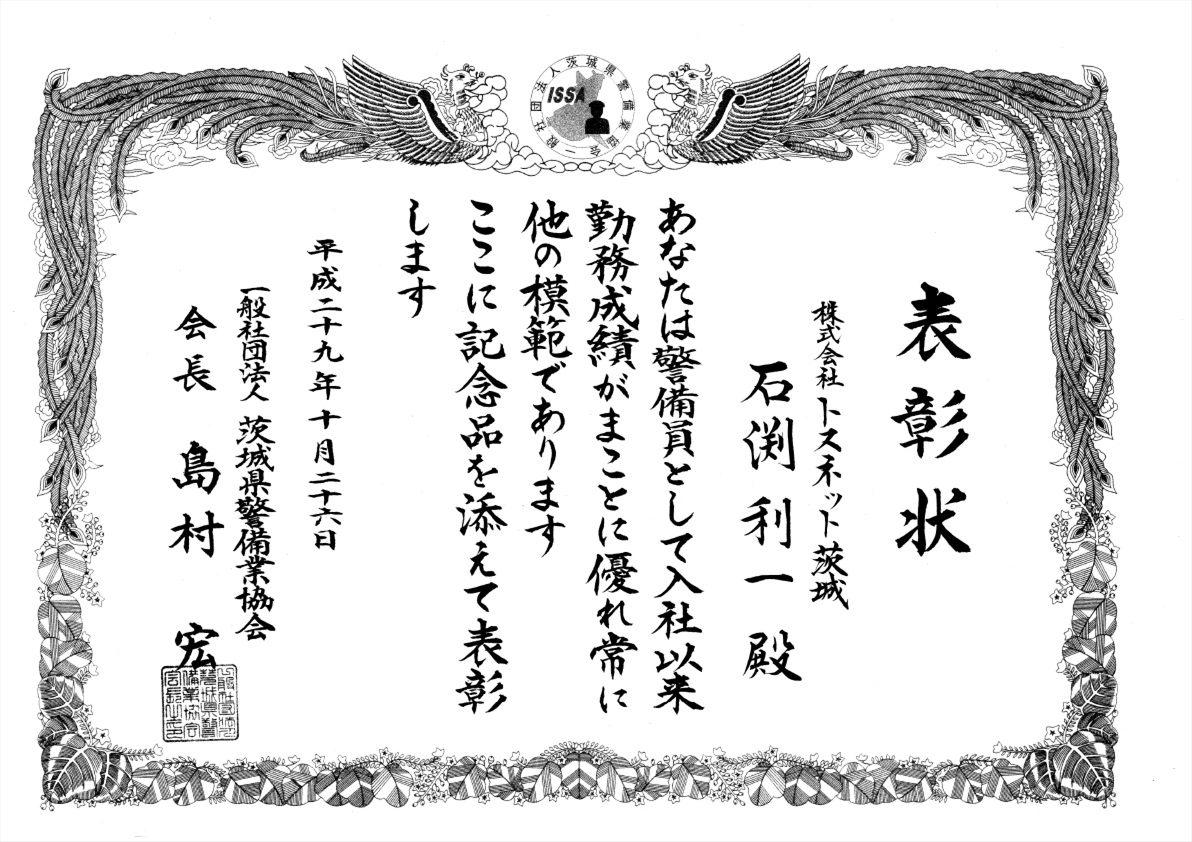 一般社団法人茨城県警備業協会
ISSA
表彰状
株式会社トスネット茨城
石渕利一殿
あなたは警備員として入社以来
勤務成績がまことに優れ常に
他の模範であります
ここに記念品を添えて表彰
します
平成二十九年十月二十六日
一般社団法人 茨城県警備業協会
会長 島村 宏